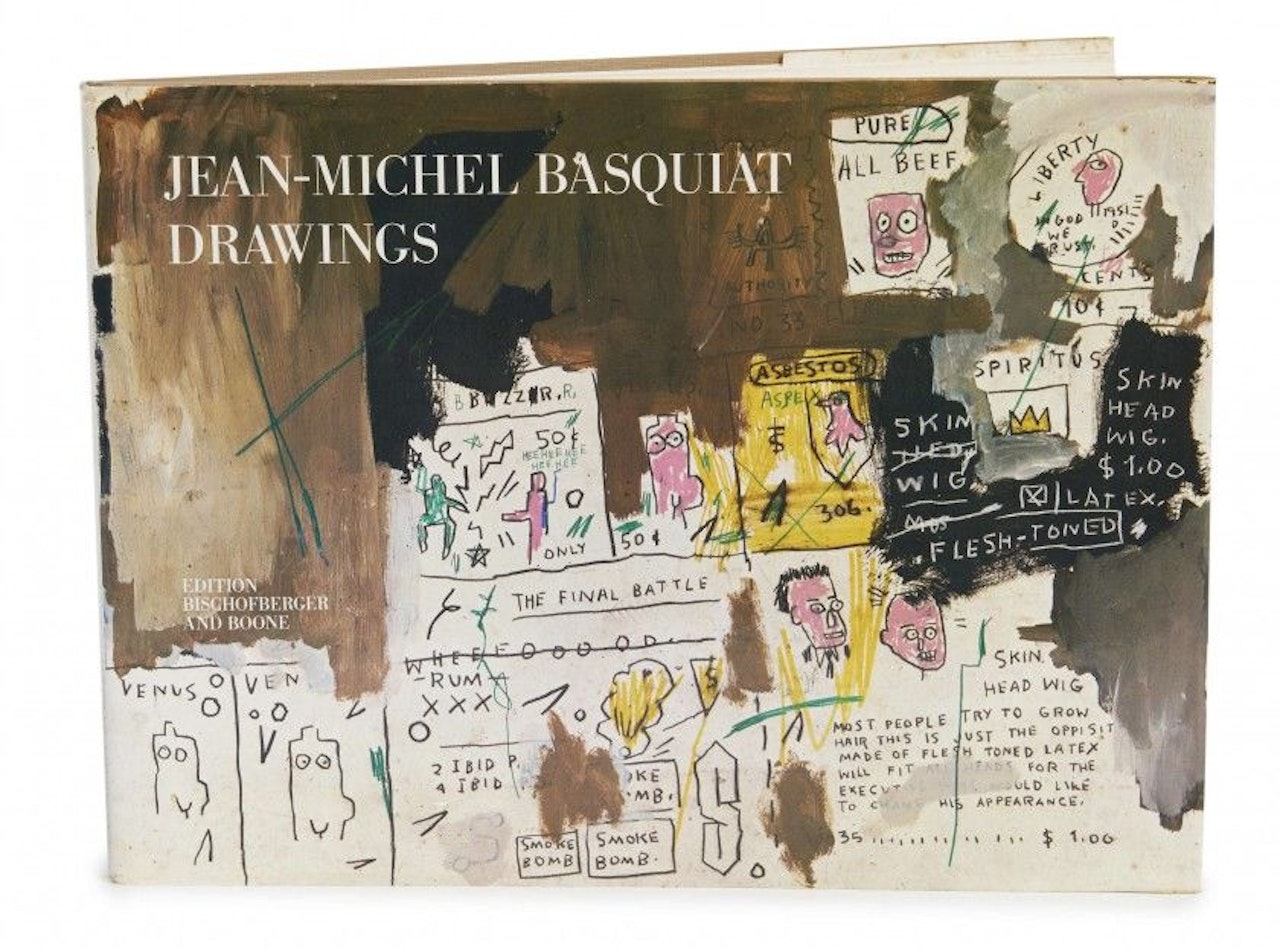 JEAN-MICHEL BASQUIAT
DRAWINGS
EDITION
BISCHOFBERGER
AND BOONE
PURE
ALL BEEF
LIBERTY
1951
IN GOD
WE
TRUST
CENTS
10¢
A
AUTHORITY
NO 33
BBUZZER,R,
50¢
HEE HEE HEE
HEE HEE
ONLY
50¢
ASBESTOS
$
306.
SPIRITUS
SKIN
HED
WIG
FLESH-TONED
SKIN
HEAD
WIG.
$1.00
LATEX.
THE FINAL BATTLE
WHEEEOOOOD
-RUM-
XXX
2 IBID P.
4 IBID
$
S
SMOKE
BOMB
SMOKE
BOMB.
VENUS
VEN
SKIN.
HEAD WIG
MOST PEOPLE TRY TO GROW
HAIR THIS IS JUST THE OPPISIT
MADE OF FLESH TONED LATEX
WILL FIT ALL HEADS FOR THE
WOULD LIKE
TO HIS APPEARANCE.
35 $ 1.00